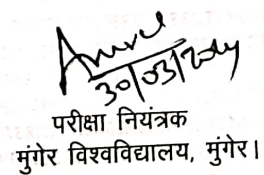 30/03/2024
परीक्षा नियंत्रक
मुंगेर विश्वविद्यालय, मुंगेर।